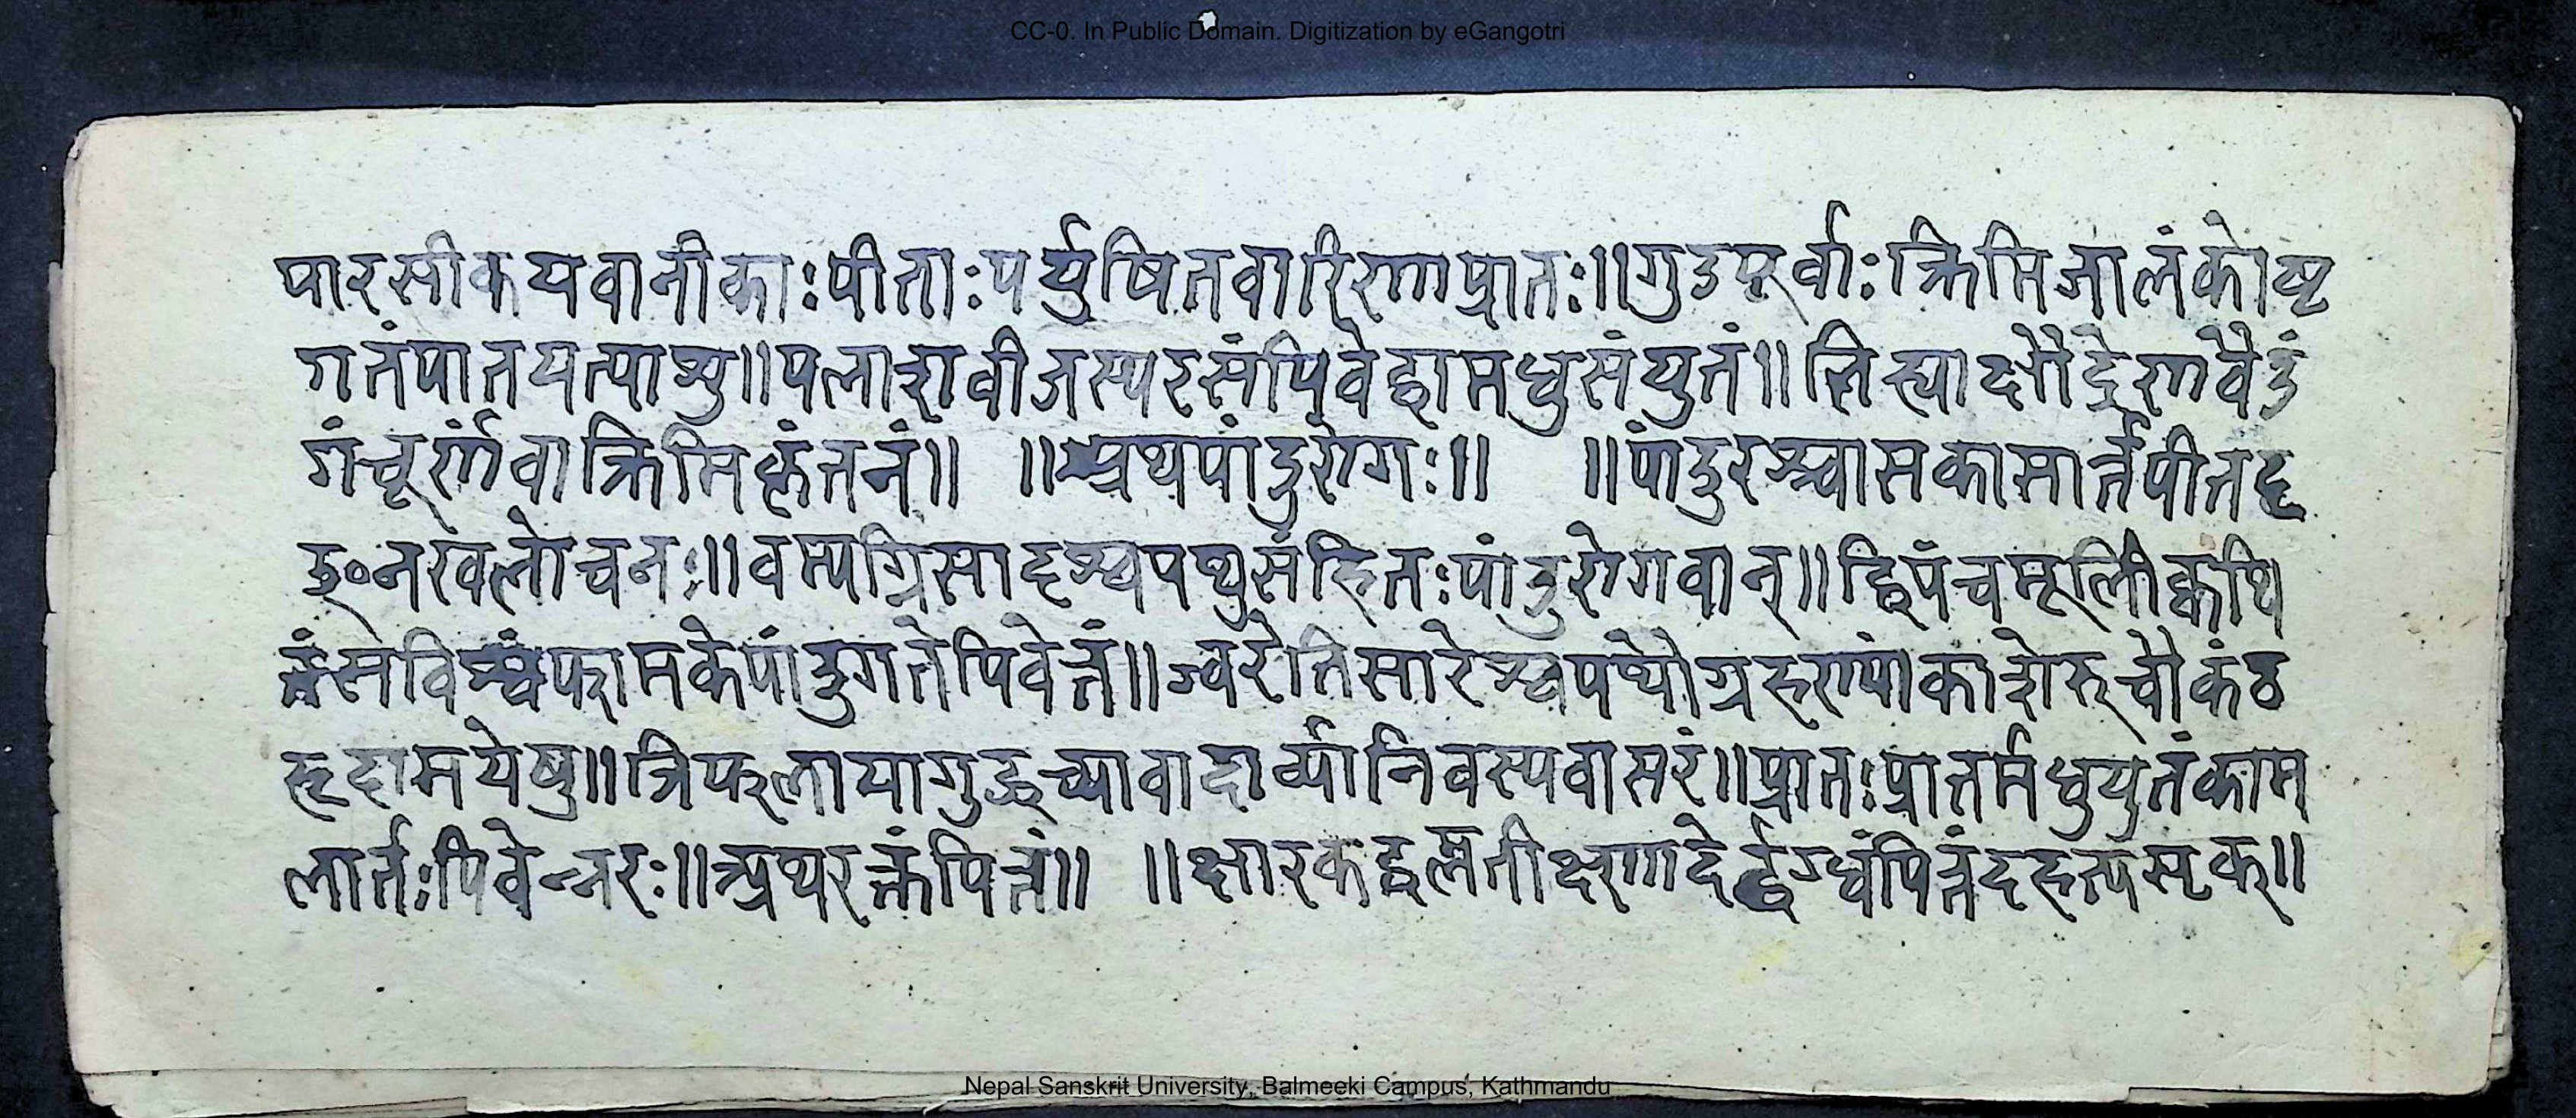 CC-0. In Public Domain. Digitization by eGangotri
पारसीकयवानीकाः पीताः पर्युषितवारिणा प्रातः ॥ गुडपूर्वाः क्रिमिजालं कोष्ट
गतं पातयत्याशु ॥ पलाशवीजस्यरसं पिवेद्वा मधुसंयुतं ॥ लिह्यात्क्षौद्रेण वैडं
गं चूर्णं वा क्रिमिकृंतनं ॥ ॥ अथ पांडुरोगः ॥ ॥ पांडुरश्वासकासार्त्तपीतदृ
ङ्नखलोचनः ॥ वम्यग्निसादश्वयथुसंहितः पांडुरोगवान् ॥ द्विपंचमूलीक्वथि
तं सविश्वं कफामके पांडुगते पिवेत्तं ॥ ज्वरेतिसारे श्वयथौ ग्रहण्यां काशेरुचौ कंठ
हृदामयेषु ॥ त्रिफलाया गुडूच्या वा दार्व्या निंवस्य वा सरं ॥ प्रातः प्रातर्मधुयुतं काम
लार्तः पिवेन्नरः ॥ अथ रक्तं पित्तं ॥ ॥ क्षारकट्वम्लतीक्ष्णादेर्द्दग्धं पित्तं दहत्यसृक् ॥
Nepal Sanskrit University, Balmeeki Campus, Kathmandu